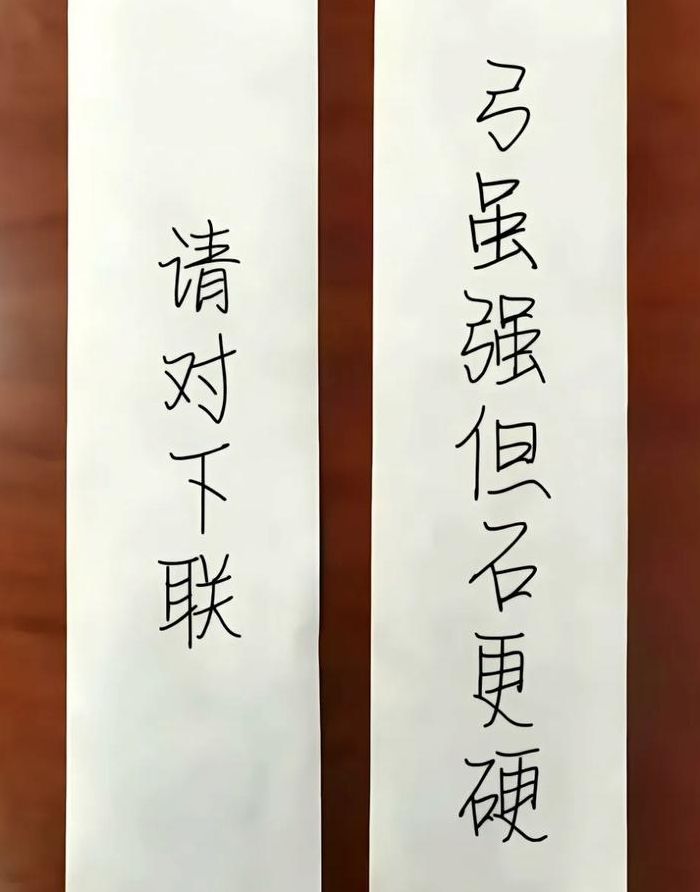 弓虽强但石更硬
请对下联